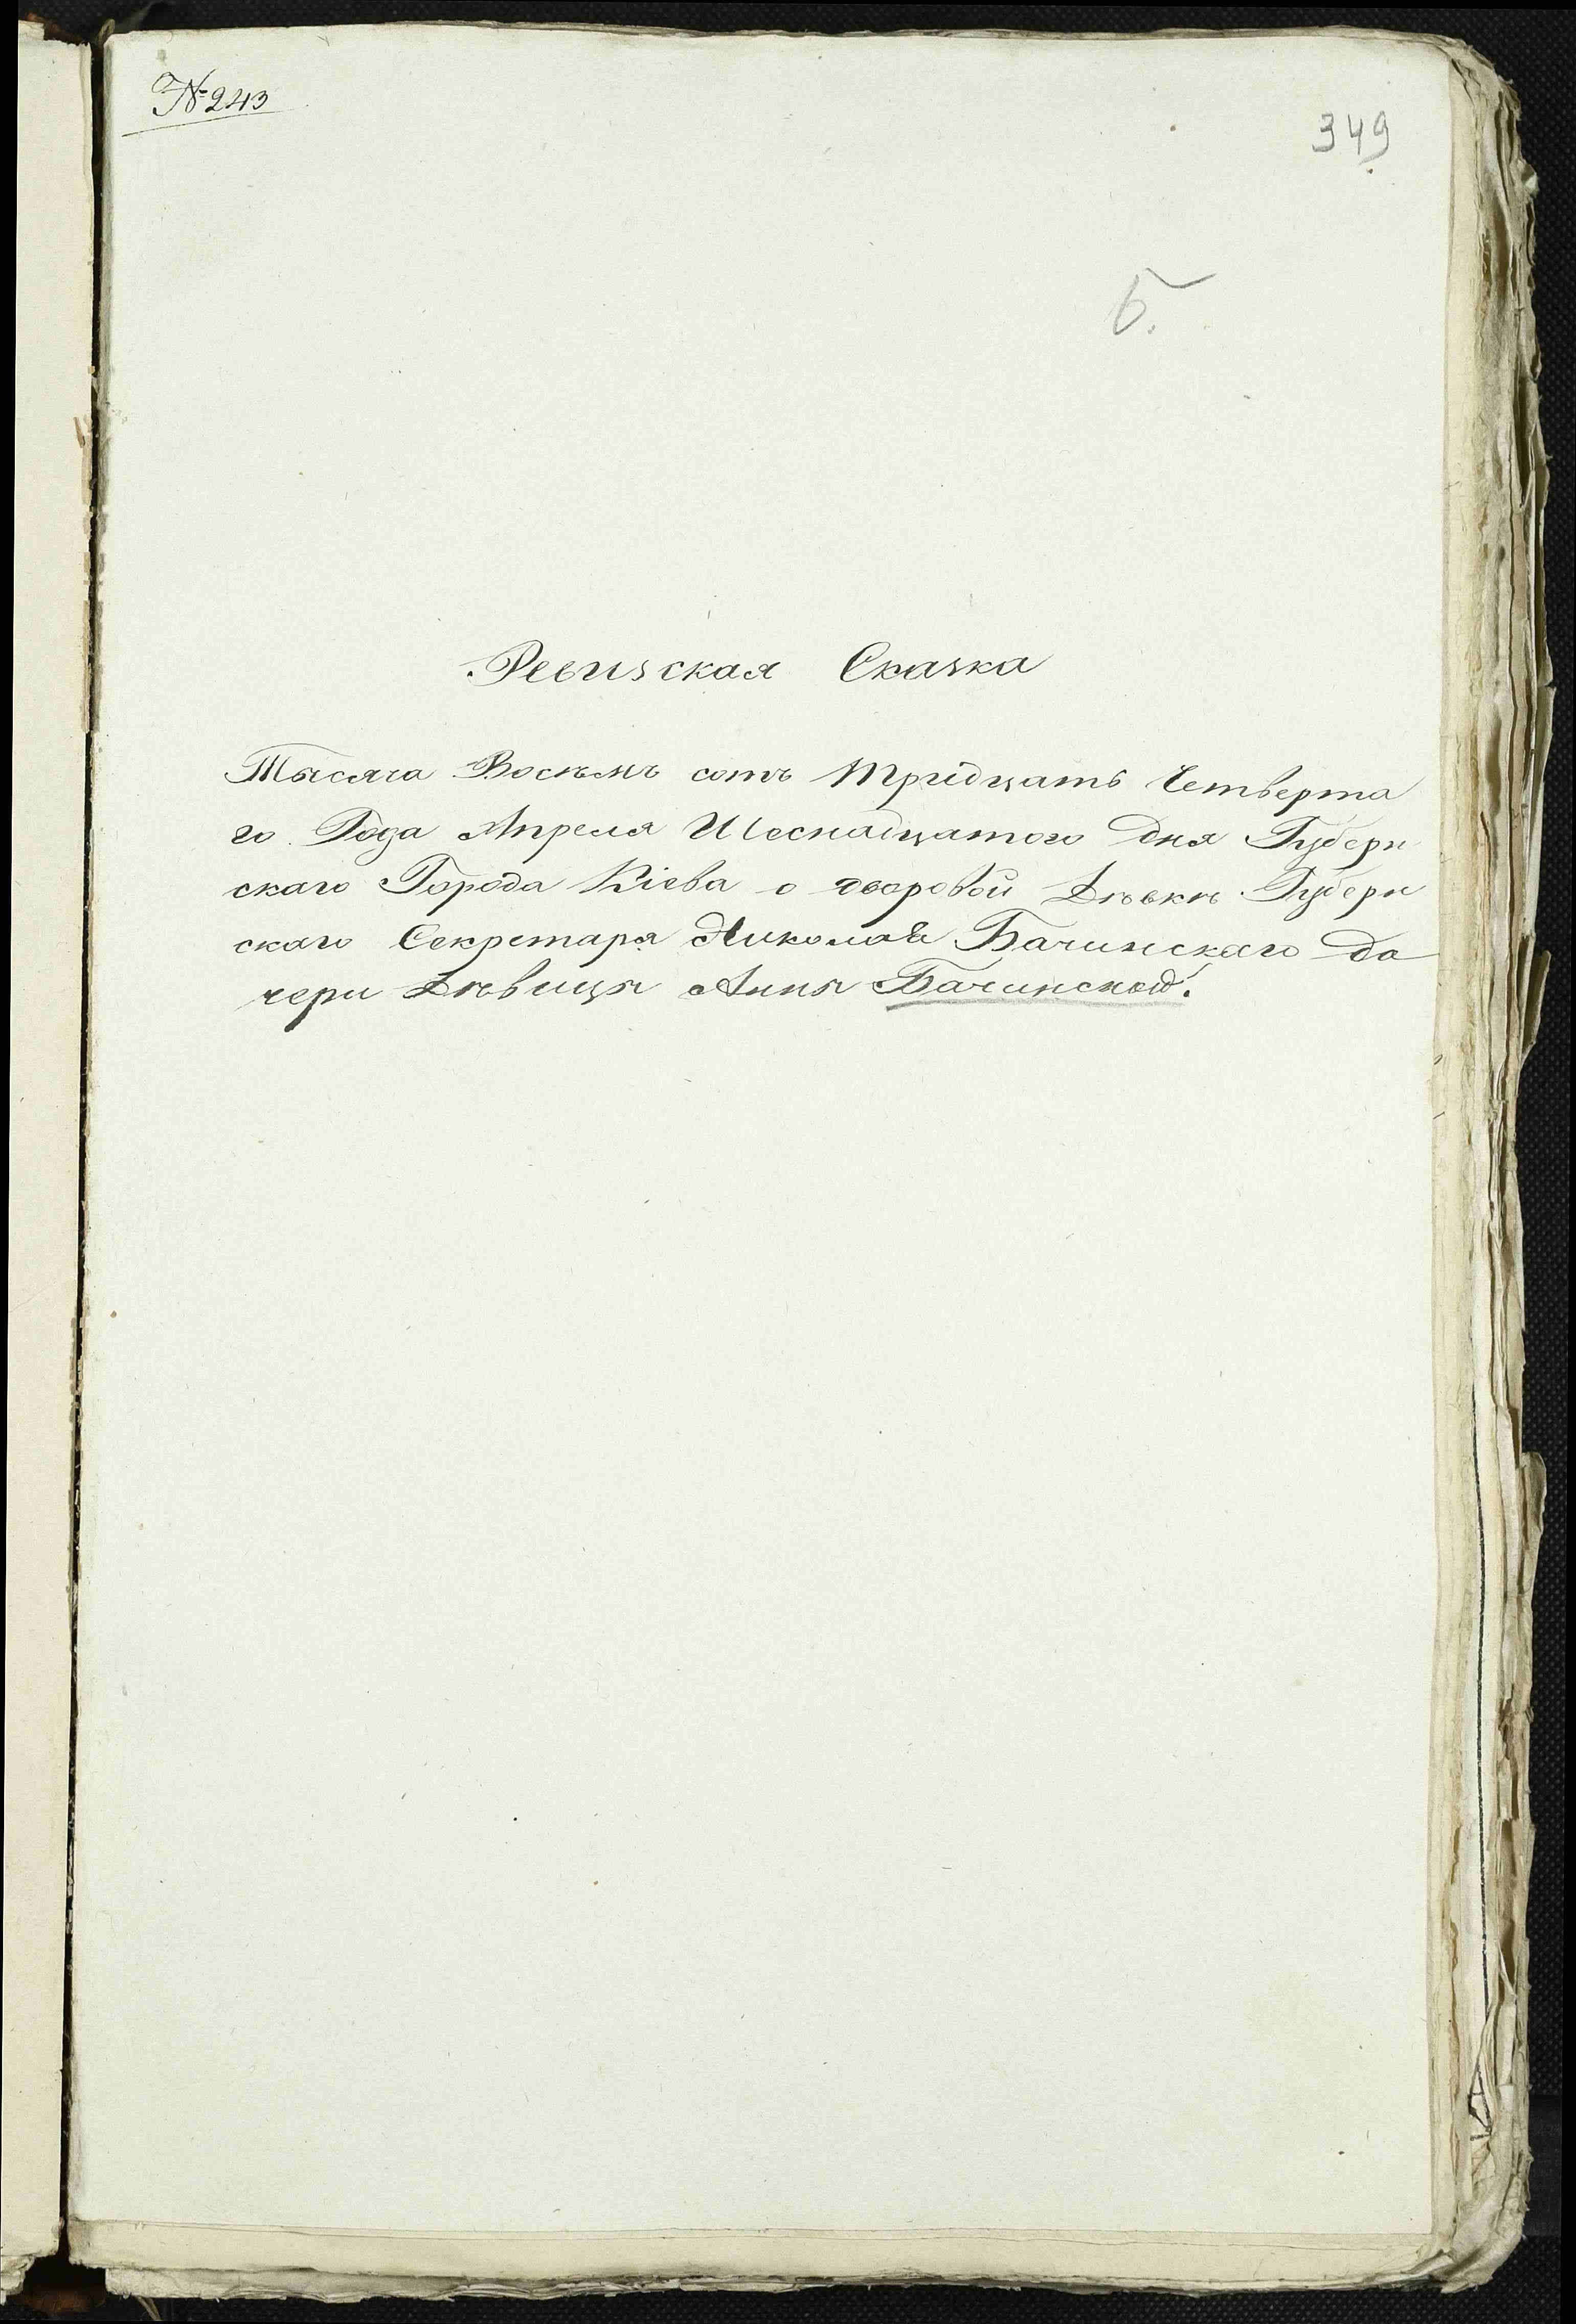 № 243
349
Б.
Ревизская Сказка
Тысяча Восѣмъ сотъ тридцать Четверта
го Года Апреля Шеснадцатого дня Губерн
скаго Города Кіева о дворовой Дѣвкѣ Губерн
скаго Секретаря Николая Бачинскаго до
чери Дѣвицы Анны Бачинской.